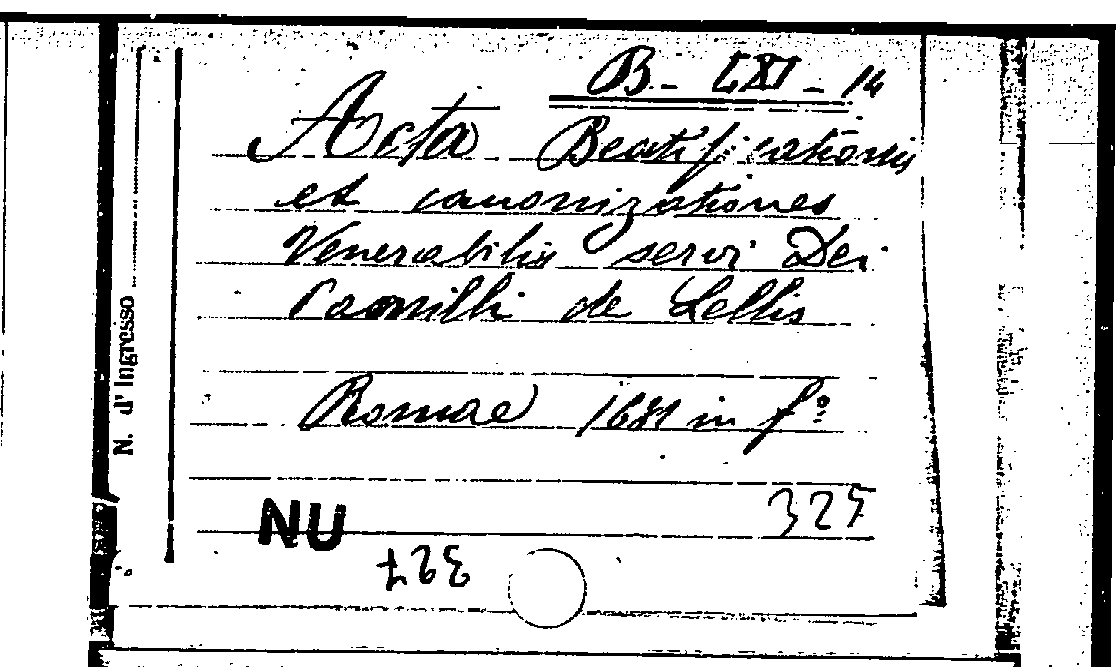 B - LXI - 14
Acta Beatificationis
et canonizationes
Venerabilis servi Dei
Camilli de Lellis
Romae 1681 in fº
325
NU
327
N. d' Ingresso